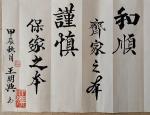 和順
齊家之本
謹慎
保家之本
甲辰秋月 王明興